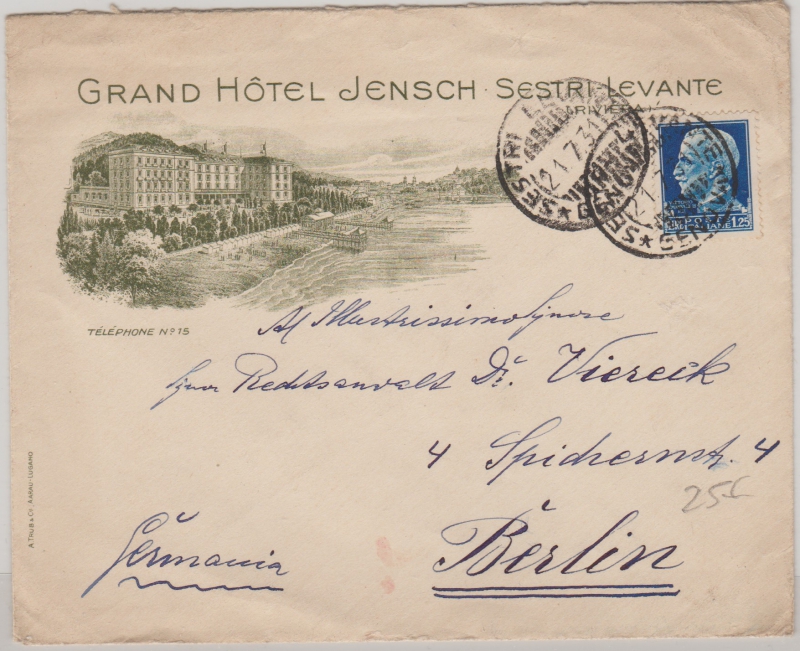 GRAND HÔTEL JENSCH · SESTRI-LEVANTE
(RIVIERA)
SESTRI LEVANTE
21.7.31
GENOVA
POSTE ITALIANE 1,25
TÉLÉPHONE Nº 15
Al Illustrissimo Signore
Signor Rechtsanwalt Dr. Viereck
4 Spichernstr. 4
25€
Berlin
Germania
A. TRÜB & Cie, AARAU-LUGANO